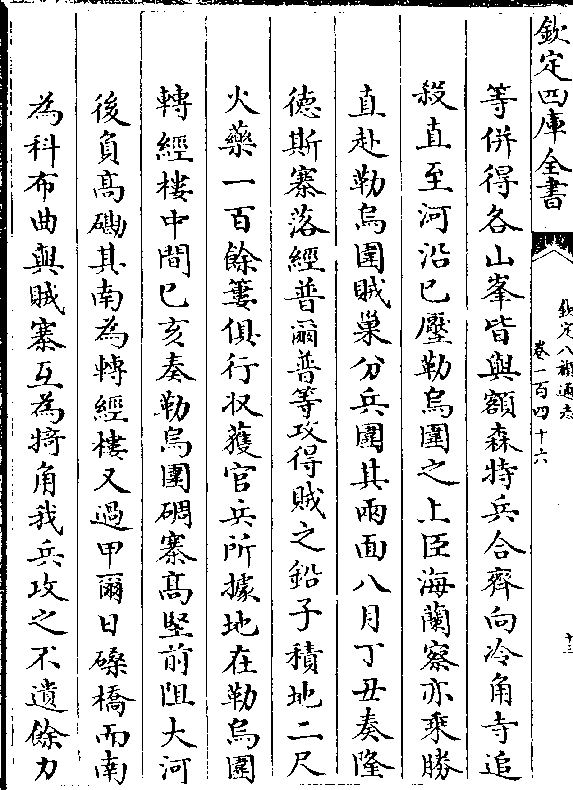 欽定四庫全書
欽定八旗通志
卷一百四十六
十三
等併得各山峯皆與額森特兵合齊向冷角寺追
殺直至河沿已壓勒烏圍之上臣海蘭察亦乘勝
直赴勒烏圍賊巢分兵圍其兩面八月丁丑奏隆
德斯寨落經普爾普等攻得賊之鉛子積地二尺
火藥一百餘簍俱行收獲官兵所據地在勒烏圍
轉經樓中間已亥奏勒烏圍碉寨髙堅前阻大河
後負髙磡其南為轉經樓又過甲爾日磉橋而南
為科布曲與賊寨互為犄角我兵攻之不遺餘力